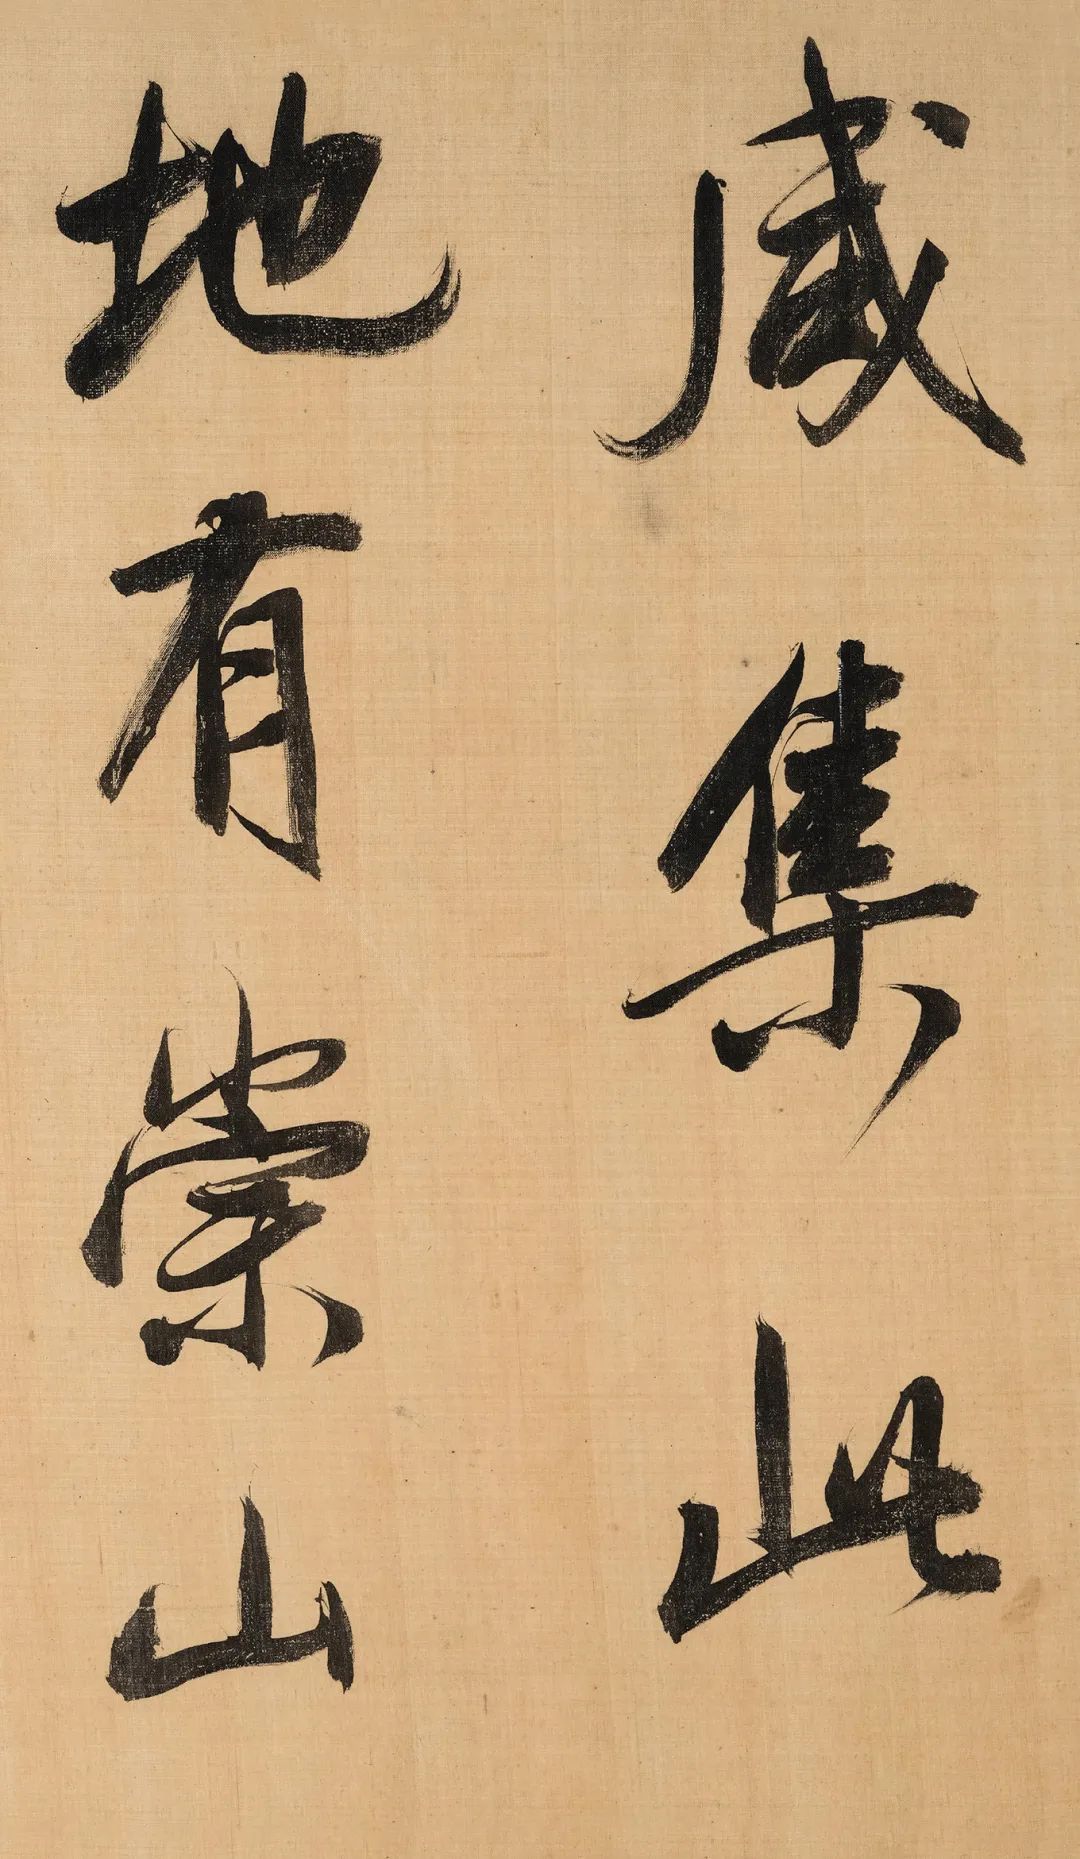 咸集此
地有崇山